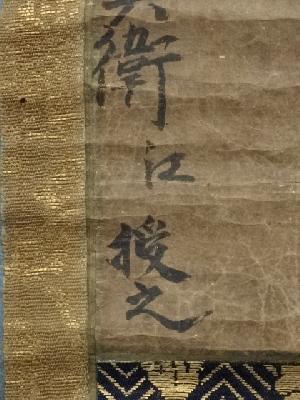 兵衛江授之